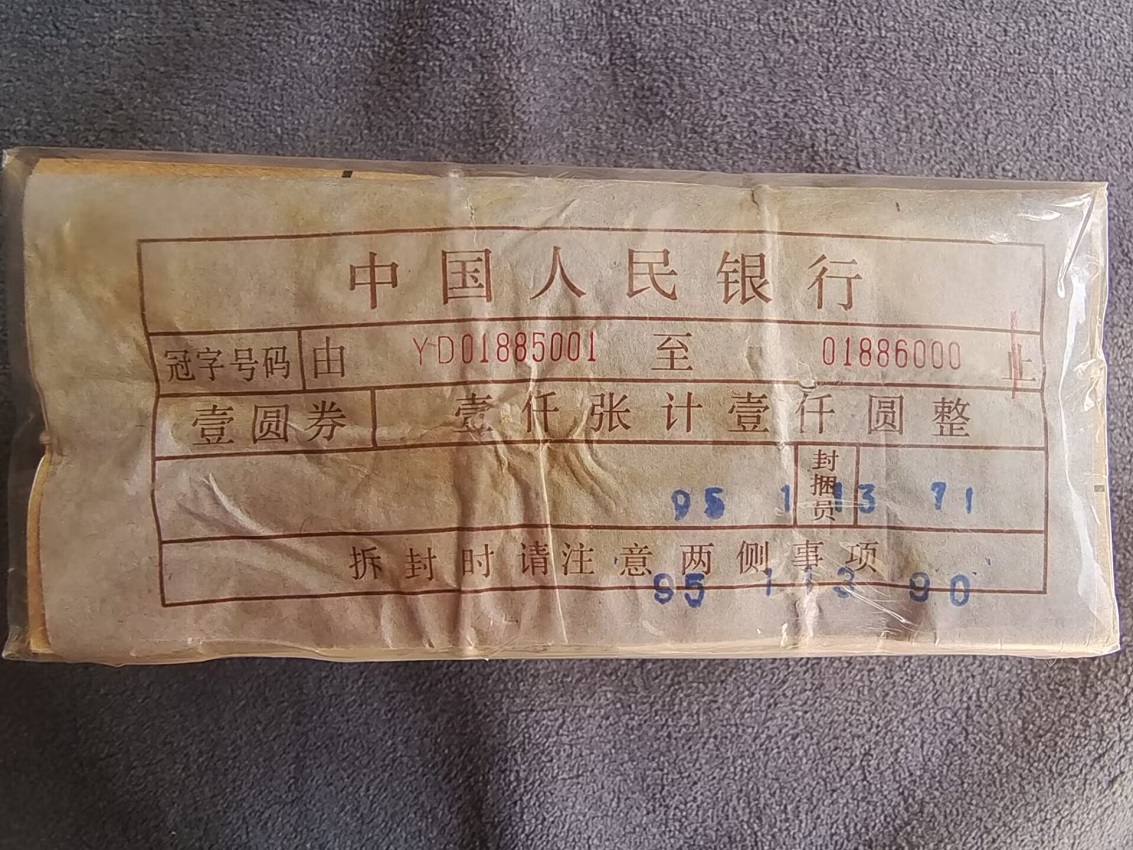 中国人民银行
冠字号码 由 YD01885001 至 01886000 止
壹圆券 壹仟张计壹仟圆整
封捆员
95 1 13 71
拆封时请注意两侧事项
95 1 13 90